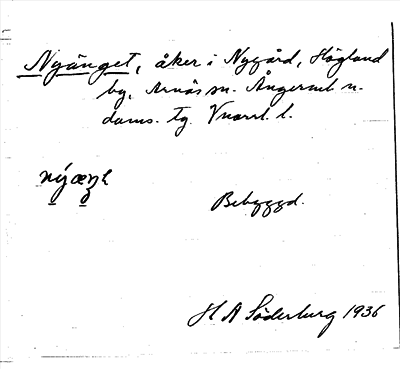 Nyänget, åker i Nygård, Högland
by, Arnäs sn. Ångerml. n.
doms. tg. Vnorrl. l.
Bebyggd.
H A Söderburg 1936